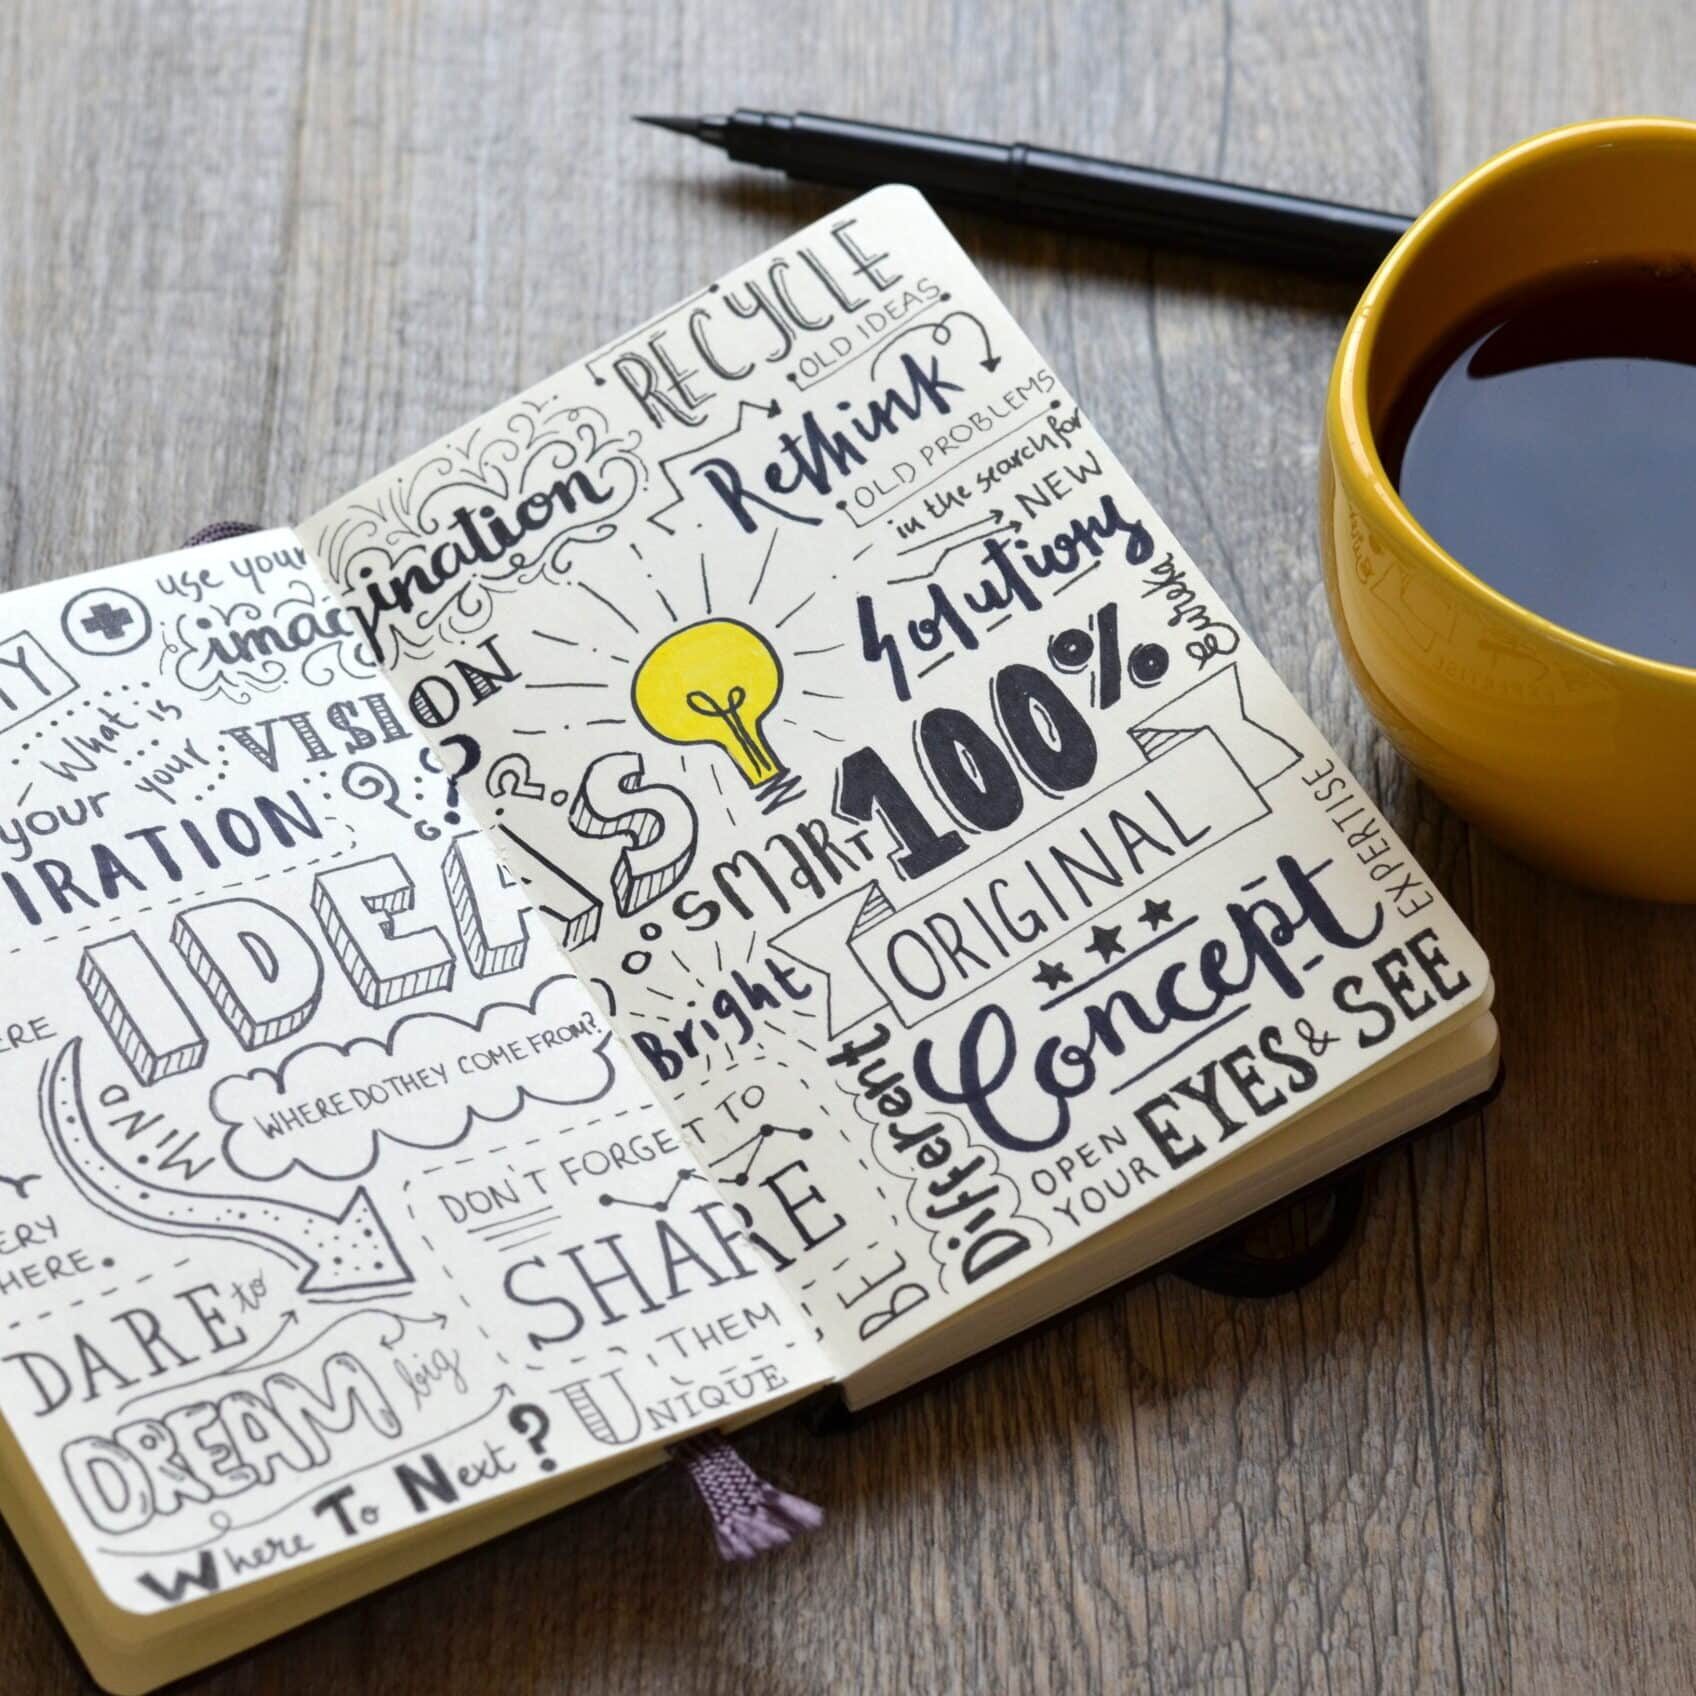 use your
imagination
What is
your VISION
your
IRATION
IDEAS
WHERE DO THEY COME FROM?
MIND
DON'T FORGET TO
SHARE
THEM
DARE to
DREAM big
UNIQUE
Where To Next?
RECYCLE
OLD IDEAS
Rethink
OLD PROBLEMS
in the search for
NEW
Solutions
Eureka
100%
SMART
ORIGINAL
Bright
Concept
EXPERTISE
BE
Different
OPEN
YOUR EYES & SEE